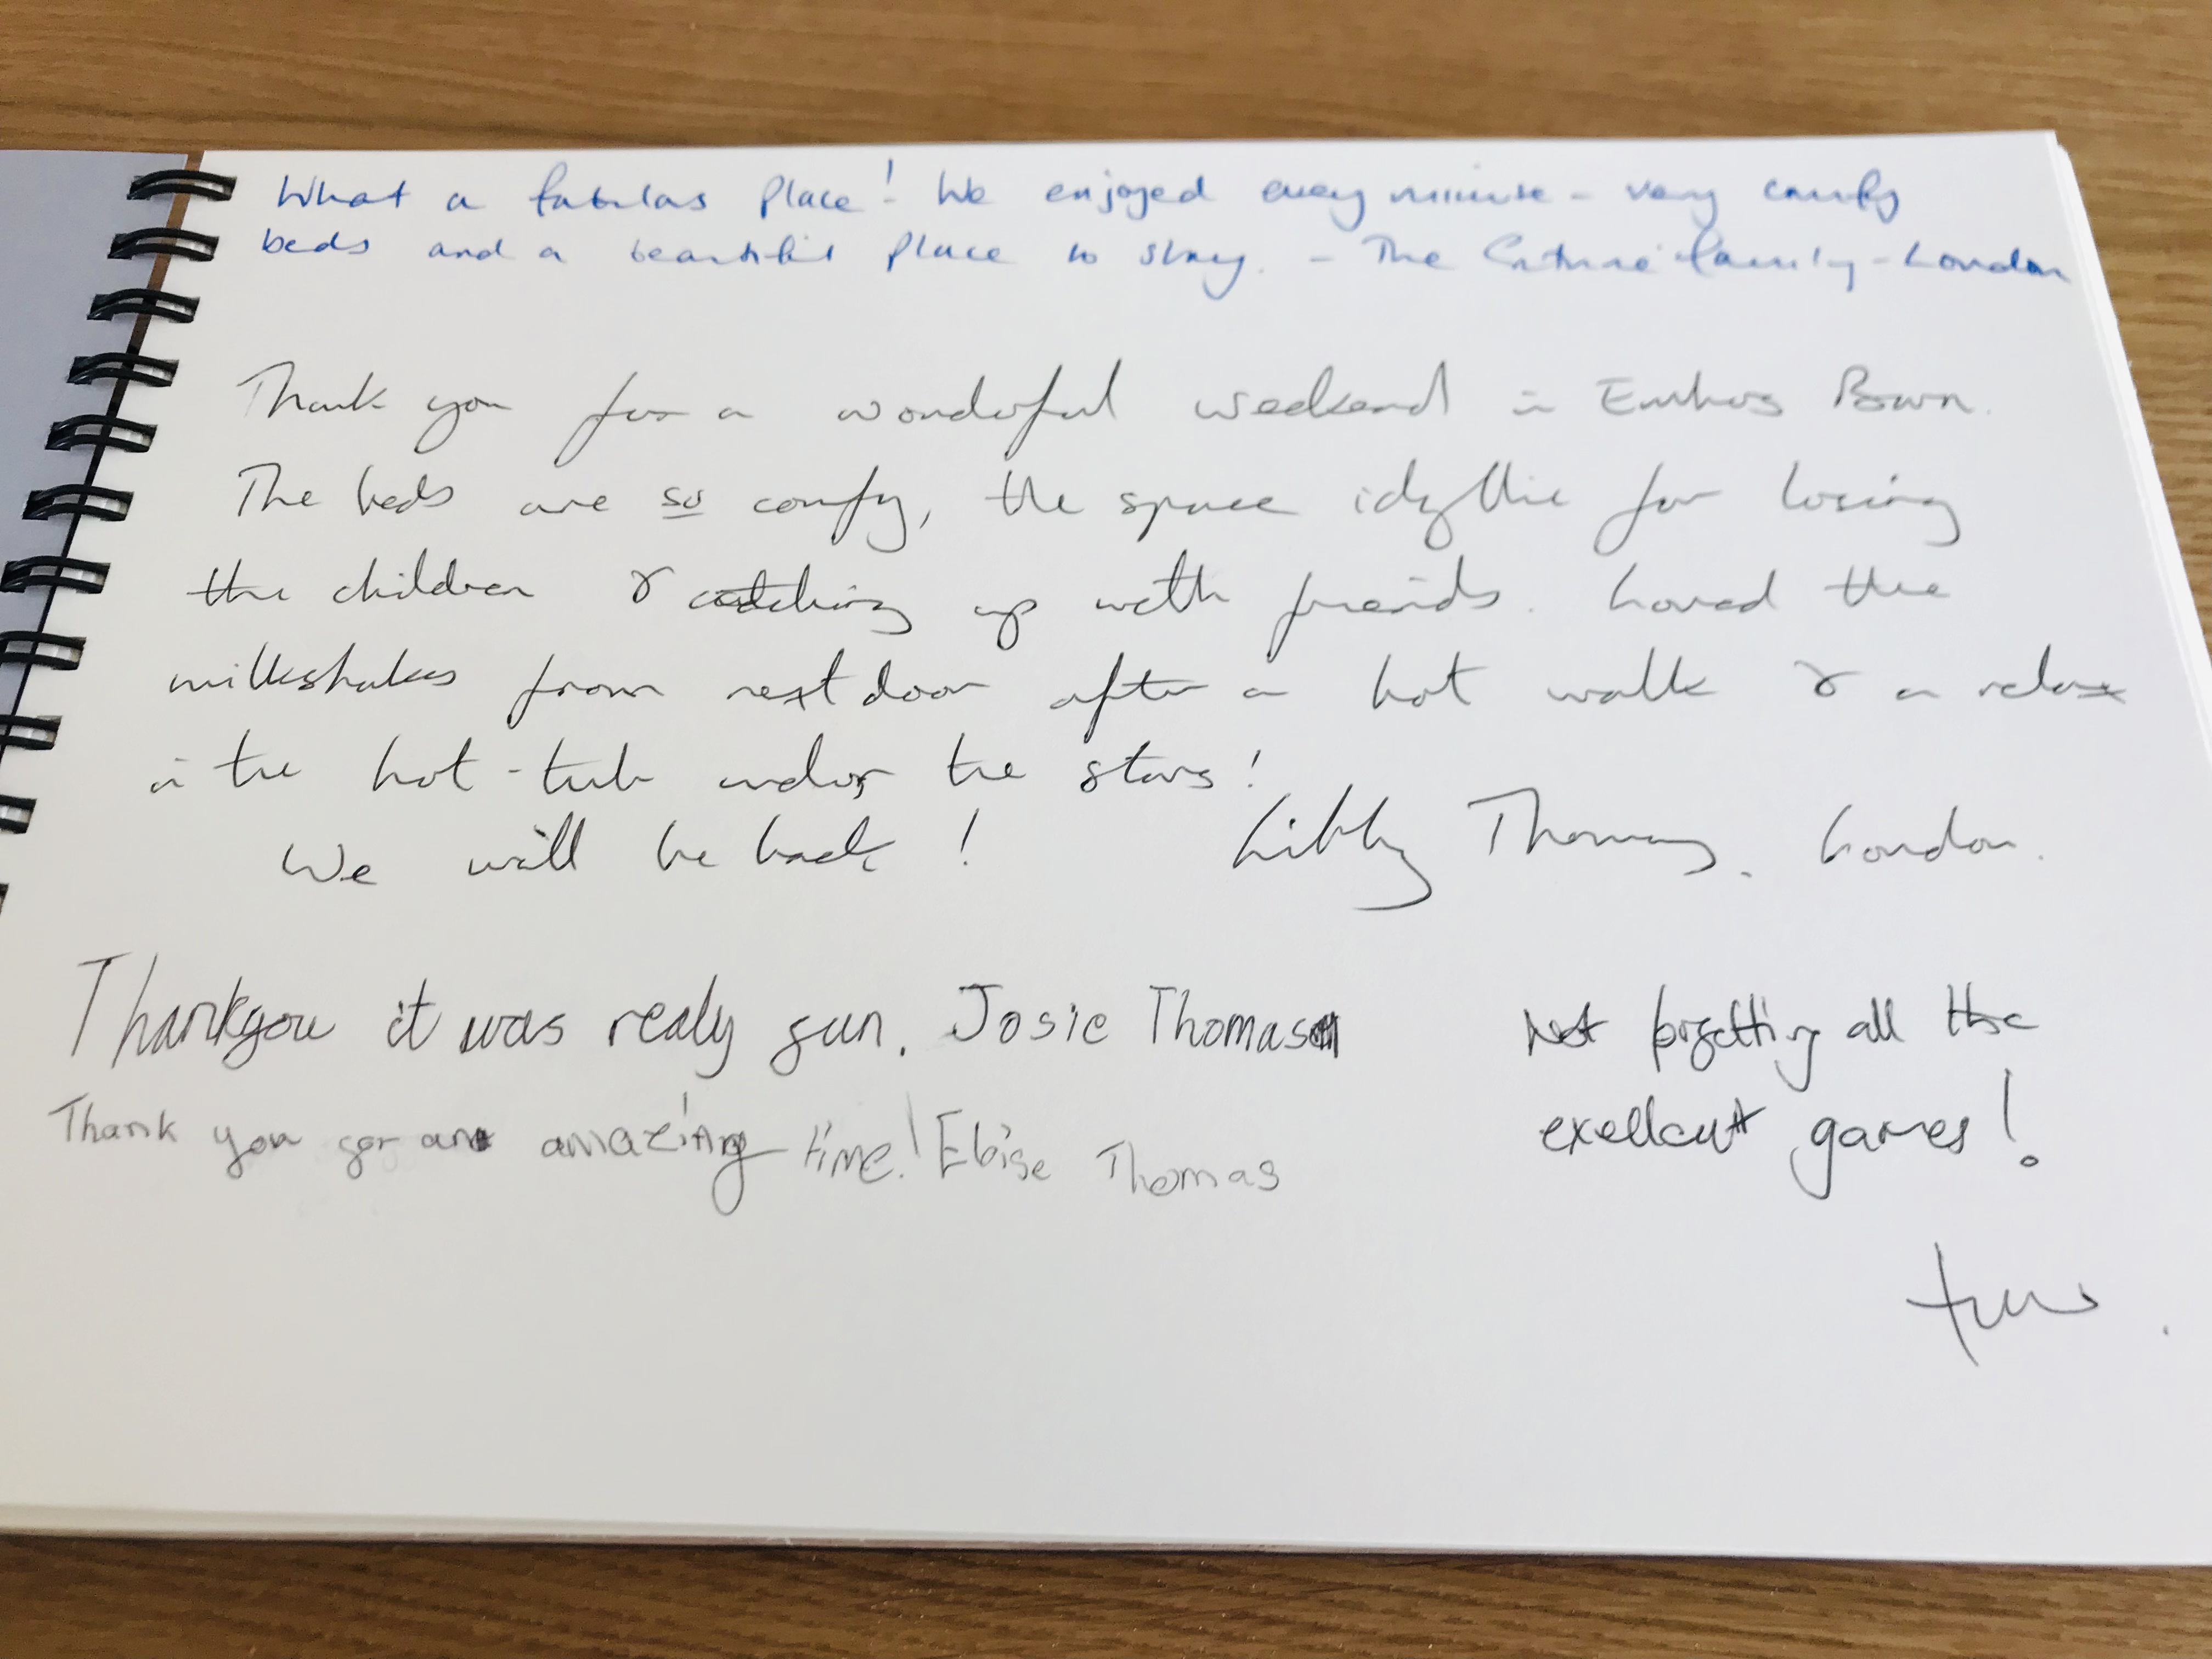 What a fabulas place! We enjoyed every minute - very comfy
beds and a beautiful place to stay. - The family - London
Thank you for a wonderful weekend in Barn.
The beds are so comfy, the space idyllic for losing
the children & catching up with friends. Loved the
milkshakes from next door after a hot walk & a relax
in the hot-tub under the stars!
We will be back! Libby Thomas. London.
Thankyou it was realy gun. Josie Thomas
Thank you gor an amazing time! Eloise Thomas
Not forgetting all the
exellent games!